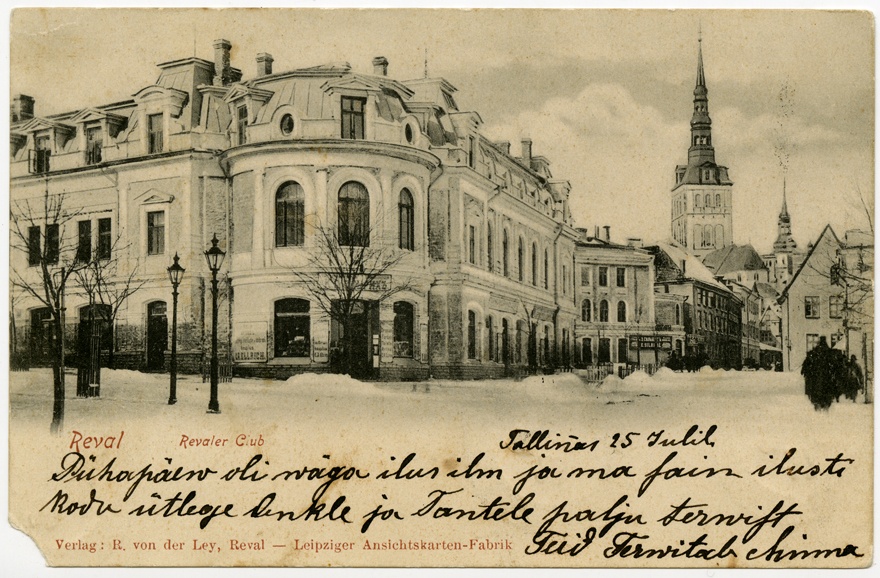 Reval
Revaler Club
Tallinas 25 Julil
Pühapäew oli wäga ilus ilm ja ma sain ilusti
kodu ütlege Onkle ja Tantele palju terwist
Verlag: R. von der Ley, Reval — Leipziger Ansichtskarten-Fabrik
Teid Terwitab Minna